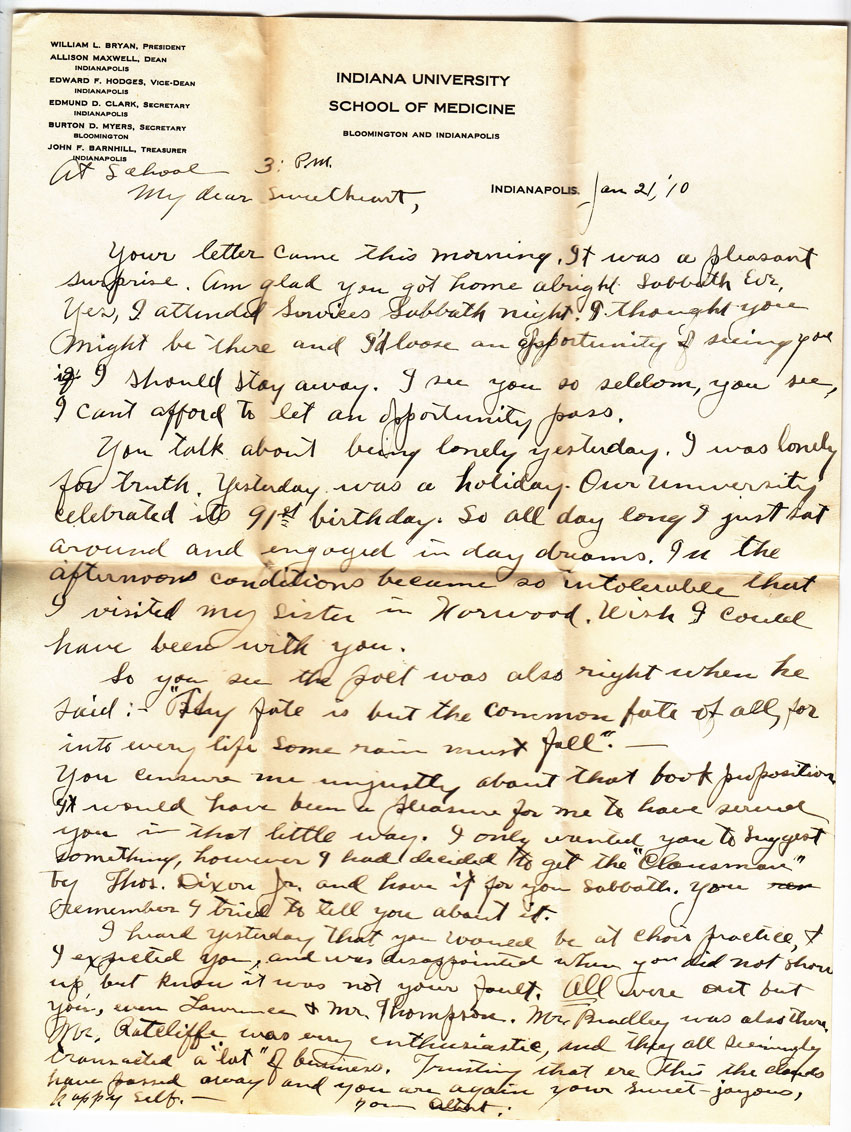 WILLIAM L. BRYAN, PRESIDENT
ALLISON MAXWELL, DEAN
INDIANAPOLIS
EDWARD F. HODGES, VICE-DEAN
INDIANAPOLIS
EDMUND D. CLARK, SECRETARY
INDIANAPOLIS
BURTON D. MYERS, SECRETARY
BLOOMINGTON
JOHN F. BARNHILL, TREASURER
INDIANAPOLIS
INDIANA UNIVERSITY
SCHOOL OF MEDICINE
BLOOMINGTON AND INDIANAPOLIS
At School 3: P.M.
INDIANAPOLIS. Jan 21, '10
My dear Sweetheart,
Your letter came this morning. It was a pleasant
surprise. Am glad you got home alright Sabbath Eve,
Yes, I attended Services Sabbath night. I thought you
might be there and I'd loose an opportunity of seeing you
if I should stay away. I see you so seldom, you see,
I cant afford to let an opportunity pass.
You talk about being lonely yesterday. I was lonely
for truth. Yesterday was a holiday. Our University
celebrated its 91st birthday. So all day long I just sat
around and engaged in day dreams. In the
afternoon conditions became so intolerable that
I visited my sister in Norwood. Wish I could
have been with you.
So you see the poet was also right when he
said:- "Thy fate is but the common fate of all, for
into every life some rain must fall". —
You censure me unjustly about that book proposition
It would have been a pleasure for me to have served
you in that little way. I only wanted you to suggest
something, however I had decided to get the "Clansman"
by Thos. Dixon Jr. and have it for you Sabbath. You
remember I tried to tell you about it.
I heard yesterday that you would be at choir practice, &
I expected you, and was disappointed when you did not show
up but know it was not your fault. All were out but
you, even Lawrence & Mr. Thompson. Mr. Bradley was also there,
Mr. Ratcliffe was very enthusiastic, and they all seemingly
transacted a "lot" of business. Trusting that ere this the clouds
have passed away and you are again your sweet-joyous,
happy self. —
your